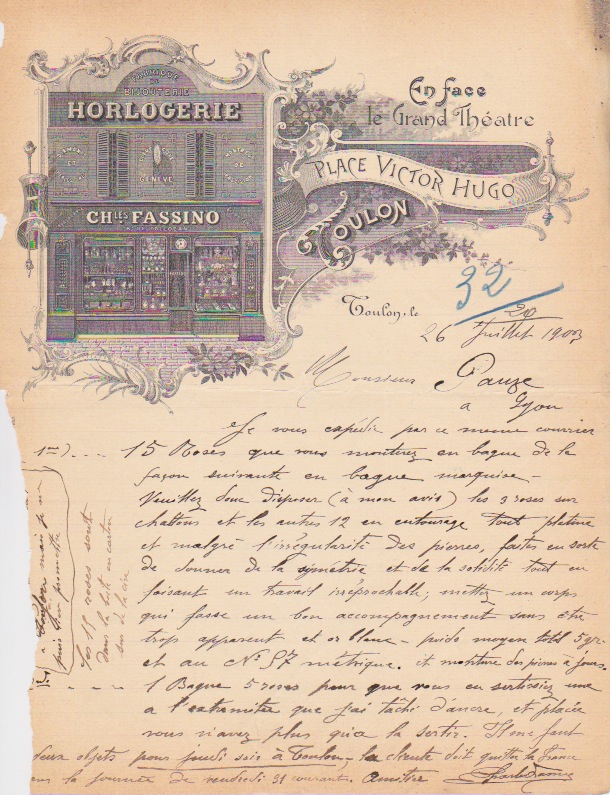 FABRIQUE
DE
BIJOUTERIE
HORLOGERIE
GENÈVE
CHLES FASSINO
En face
le Grand Théatre
PLACE VICTOR HUGO
TOULON
32
Toulon, le
20
26 Juillet 1903
Monsieur Pauze
a Lyon
Je vous expédie par ce meme courrier
1°) . . . 15 Roses que vous monterez en bague de la
façon suivante en bague marquise -
Veuillez donc disposer (à mon avis) les 3 roses sur
chattons et les autres 12 en entourage tout platine
et malgré l'irrégularité des pierres, faites en sorte
de donner de la symétrie et de la solidité tout en
faisant un travail irréprochable; mettez un corps
qui fasse un bon accompagnement sans être
trop apparent et or blanc - poids moyen total 5 gr -
et au No 57 métrique. et monture des pierres à jours.
. . . 1 Bague 5 roses pour que vous en sertissiez une
a l'extremitée que j'ai tâché d'ancre, et placée
vous n'avez plus qu'a la sertir. Il me faut
deux objets pour jeudi soir à Toulon - la cliente doit quitter la France
la journée de vendredi 31 courant.
les 15 roses sont
dans la boite en carton
sur de la cire
a Toulon mais je ne
puis promettre